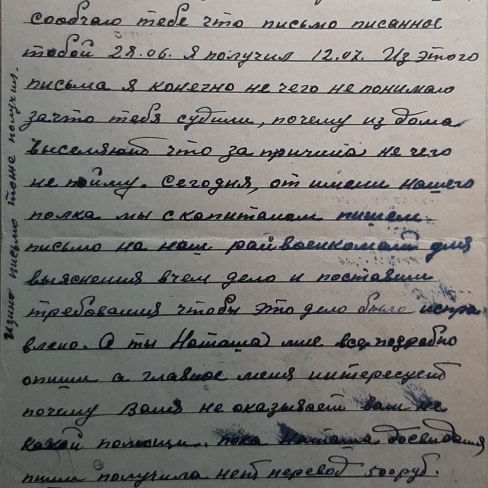 сообчаю тебе что письмо писанное
тобой 28.06. я получил 12.07. Из этого
письма я конечно не чего не понимаю
зачто тебя судили, почему из дома
выселяют что за причина не чего
не пойму. Сегодня, от имени нашего
полка мы с капитаном пишем
письмо на наш райвоенкомат для
выяснения вчем дело и поставим
требования чтобы это дело было испра
влено. А ты Наташа мне все подробно
опиши а главное меня интересует
почему Ваня не оказывает вам не
какой помощи. пока Наташа досвидания
пиши получила нет перевод 500 руб.
письмо тоже получил.